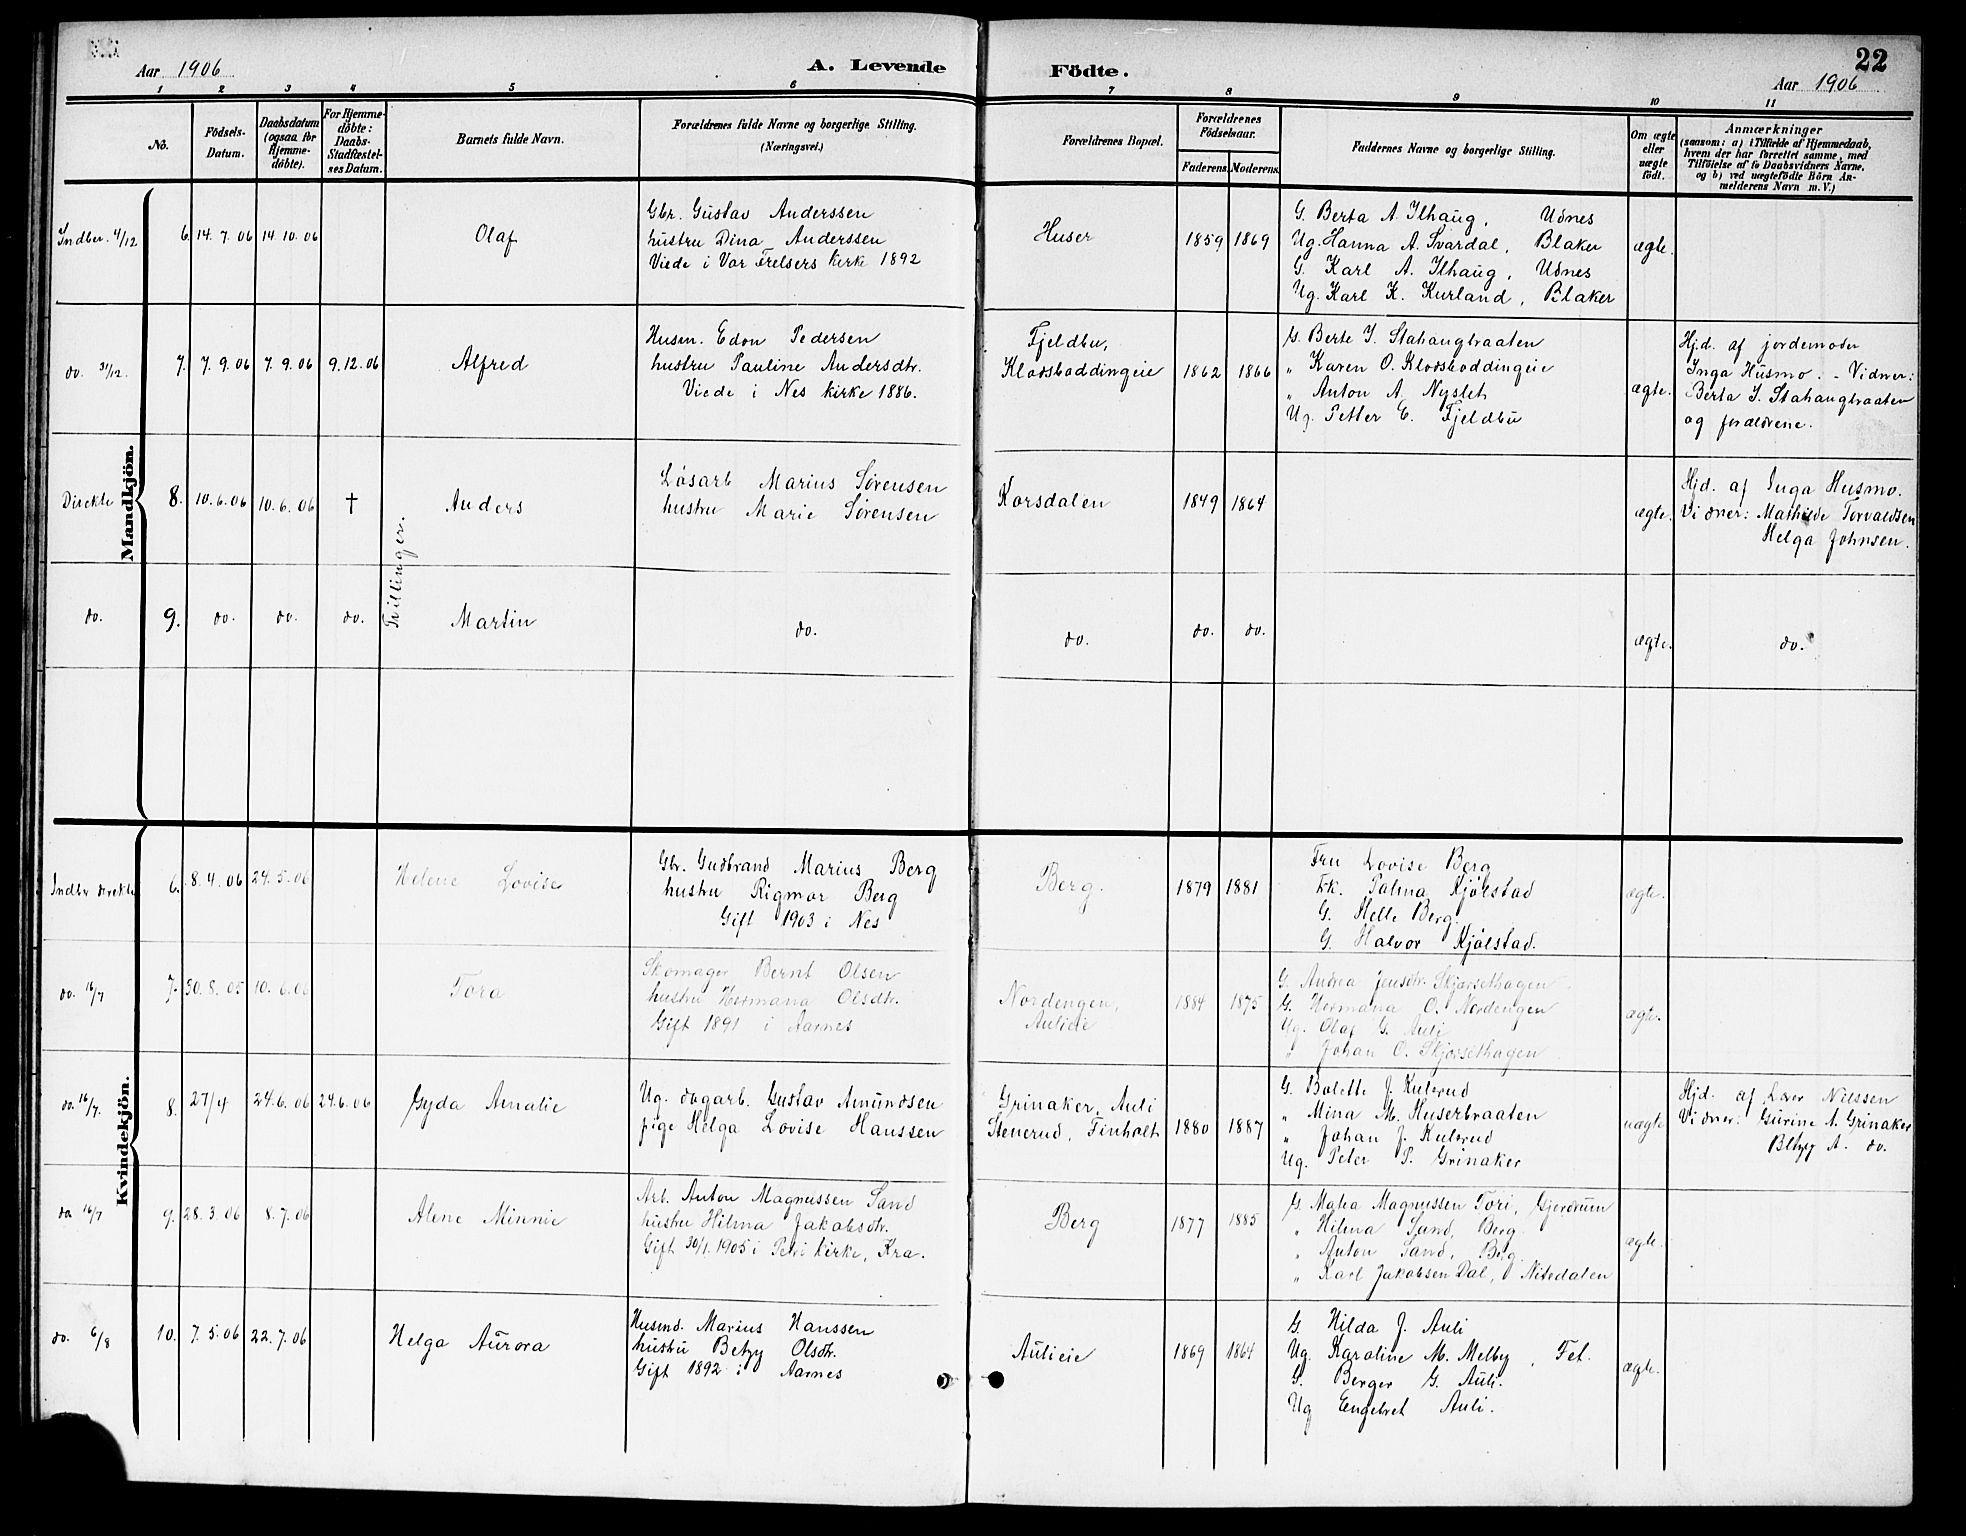 Aar 1906
A. Levende
Födte.
22
Aar 1906
1 2 3 4 5 6 7 8 9 10 11
No.
Födsels-
Datum.
Daabsdatum
(ogsaa for
Hjemme-
döbte).
For Hjemme-
döbte:
Daabs-
Stadfæstel-
ses Datum.
Barnets fulde Navn.
Forældrenes fulde Navne og borgerlige Stilling.
(Næringsvei.)
Forældrenes Bopæl.
Forældrenes
Födselsaar.
Faderens. Moderens.
Faddernes Navne og borgerlige Stilling.
Om ægte
eller
uægte
födt.
Anmærkninger
(saasom: a) i Tilfælde af Hjemmedaab,
hvem der har forrettet samme, med
Tilföielse af to Daabsvidners Navne,
og b) ved uægtefödte Börn An-
melderens Navn m. V.)
Mandkjön.
Indber. 4/12
6. 14. 7. 06 14. 10. 06
Olaf
Gbr. Gustav Anderssen
hustru Dina Anderssen
Viede i Vor Frelsers kirke 1892
Huser
1859 1869
G. Berta A. Ilhaug, Udnes
Ug. Hanna A. Svardal, Blaker
G. Karl A. Ilhaug, Udnes
Ug. Karl K. Kurland, Blaker
ægte.
do. 31/12.
7. 7. 9. 06 7. 9. 06 9. 12. 06
Alfred
Husm. Edon Pedersen
hustru Pauline Andersdtr.
Viede i Nes kirke 1886.
Fjeldbu,
Klodsboddingeie
1862 1866
G. Berte I. Stahaugbraaten
" Karen O. Klodsboddingeie
" Anton A. Nyslet
Ug. Petter E. Fjeldbu
ægte.
Hjd. af jordemoder
Inga Husmo. - Vidner:
Berta I. Stahaugbraaten
og forældrene.
Direkte
8. 10. 6. 06 10. 6. 06 †
Tvillinger.
Anders
Løsarb Marius Sørensen
hustru Marie Sørensen
Korsdalen
1849 1864
ægte.
Hjd. af Inga Husmo.
Vidner: Mathilde Torvaldsen
Helga Johnsen.
do.
9. do. do. do.
Martin
do.
do.
do. do.
ægte.
do.
Kvindekjön.
Indber direkte
6. 8. 4. 06 24. 5. 06
Helene Lovise
Gbr. Gudbrand Marius Berg
hustru Rigmor Berg
Gift 1903 i Nes
Berg.
1879 1881
Fru Lovise Berg
Frk. Palma Kjølstad
G. Helle Berg.
G. Halvor Kjølstad.
ægte.
do. 16/7
7. 30. 8. 05 10. 6. 06
Tora
Skomager Bernt Olsen
hustru Hermana Olsdtr.
Gift 1891 i Aarnes
Nordengen,
Aulieie
1884 1875
G. Andrea Jensdtr. Skjørsethagen
G. Hermana O. Nordengen
Ug. Olaf G. Auli
" Johan O. Skjørsethagen
ægte.
do. 16/7.
8. 27/4 24. 6. 06 24. 6. 06
Gyda Amalie
Ug. dagarb. Gustav Amundsen
pige Helga Lovise Hanssen
Grinaker, Auli
Stenerud, Finholt
1880 1887
G. Bolette J. Kulsrud
" Mina M. Huserbraaten
" Johan J. Kulsrud
Ug. Peter P. Grinaker
uægte
Hjd. af Lærer Nilssen
Vidner: Gurine A. Grinaker
A. do.
do 16/7
9. 28. 3. 06 8. 7. 06
Alene Minnie
Arb. Anton Magnussen Sand
hustru Hilma Jakobsdtr.
Gift 30/1. 1905 i Petri kirke, Kra.
Berg
1877 1885
G. Matea Magnussen Tori, Gjerdrum
" Hilma Sand, Berg
" Anton Sand, Berg
" Karl Jakobsen Dal, Nitedalen
ægte.
do. 6/8
10. 7. 5. 06 22. 7. 06
Helga Aurora
Husmd. Marius Hanssen
hustru Betzy Olsdtr.
Gift 1892 i Aarnes
Aulieie
1869 1864
G. Hilda J. Auli
Ug. Karoline M. Melby, Fet.
G. Berger G. Auli.
Ug Engebret Auli.
ægte.